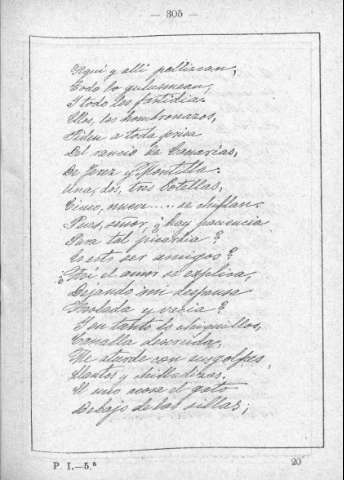 — 305 —
Aqui y alli pellizcan,
Todo lo gulusmean,
I todo les fastidia.
Ellos, los hombronazos,
Piden a toda prisa
Del rancio de Canarias,
De Jerez y Montilla.
Una, dos, tres botellas,
Cinco, nueve..... se chiflan.
Pues, señor, ¿hay paciencia
Para tal picardia?
¿Es esto ser amigos?
¿Asi el amor se explica,
Dejando mi despensa
Asolada y vacia?
I en tanto los chiquillos,
Canalla descreida,
Me aturde con sus golpes,
Llantos y chilladizas.
El uno acosa el gato
Debajo de las sillas;
P. I.—5.ª
20